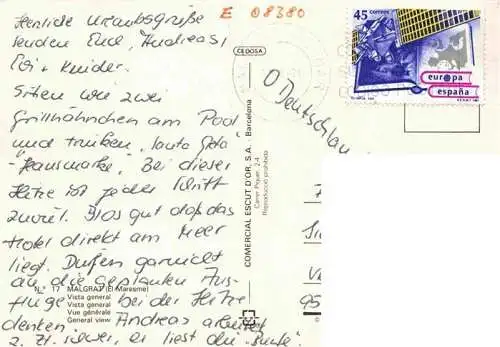 E 08380
Herzliche Urlaubsgrüße
senden Euch, Andreas,
Evi + Kinder.
Sitzen wie zwei
Grillhähnchen am Pool
und trinken
"Hausmarke". Bei dieser
Hitze ist jeder Schritt
zuviel. Bloß gut daß das
Hotel direkt am Meer
liegt. Dürfen garnicht
an die geplanten Aus-
flüge bei der Hitze
denken. Andreas arbeitet
z. Zt. schwer, er liest die "bunte".
Nº 17 MALGRAT (El Maresme)
Vista general
Vista general
Vue générale
General view
CEDOSA
COMERCIAL ESCUT D'OR, S.A. - Barcelona
Carrer Piquer, 2-4
Reproducció prohibida
45 correos
europa
españa
Deutschlan
95